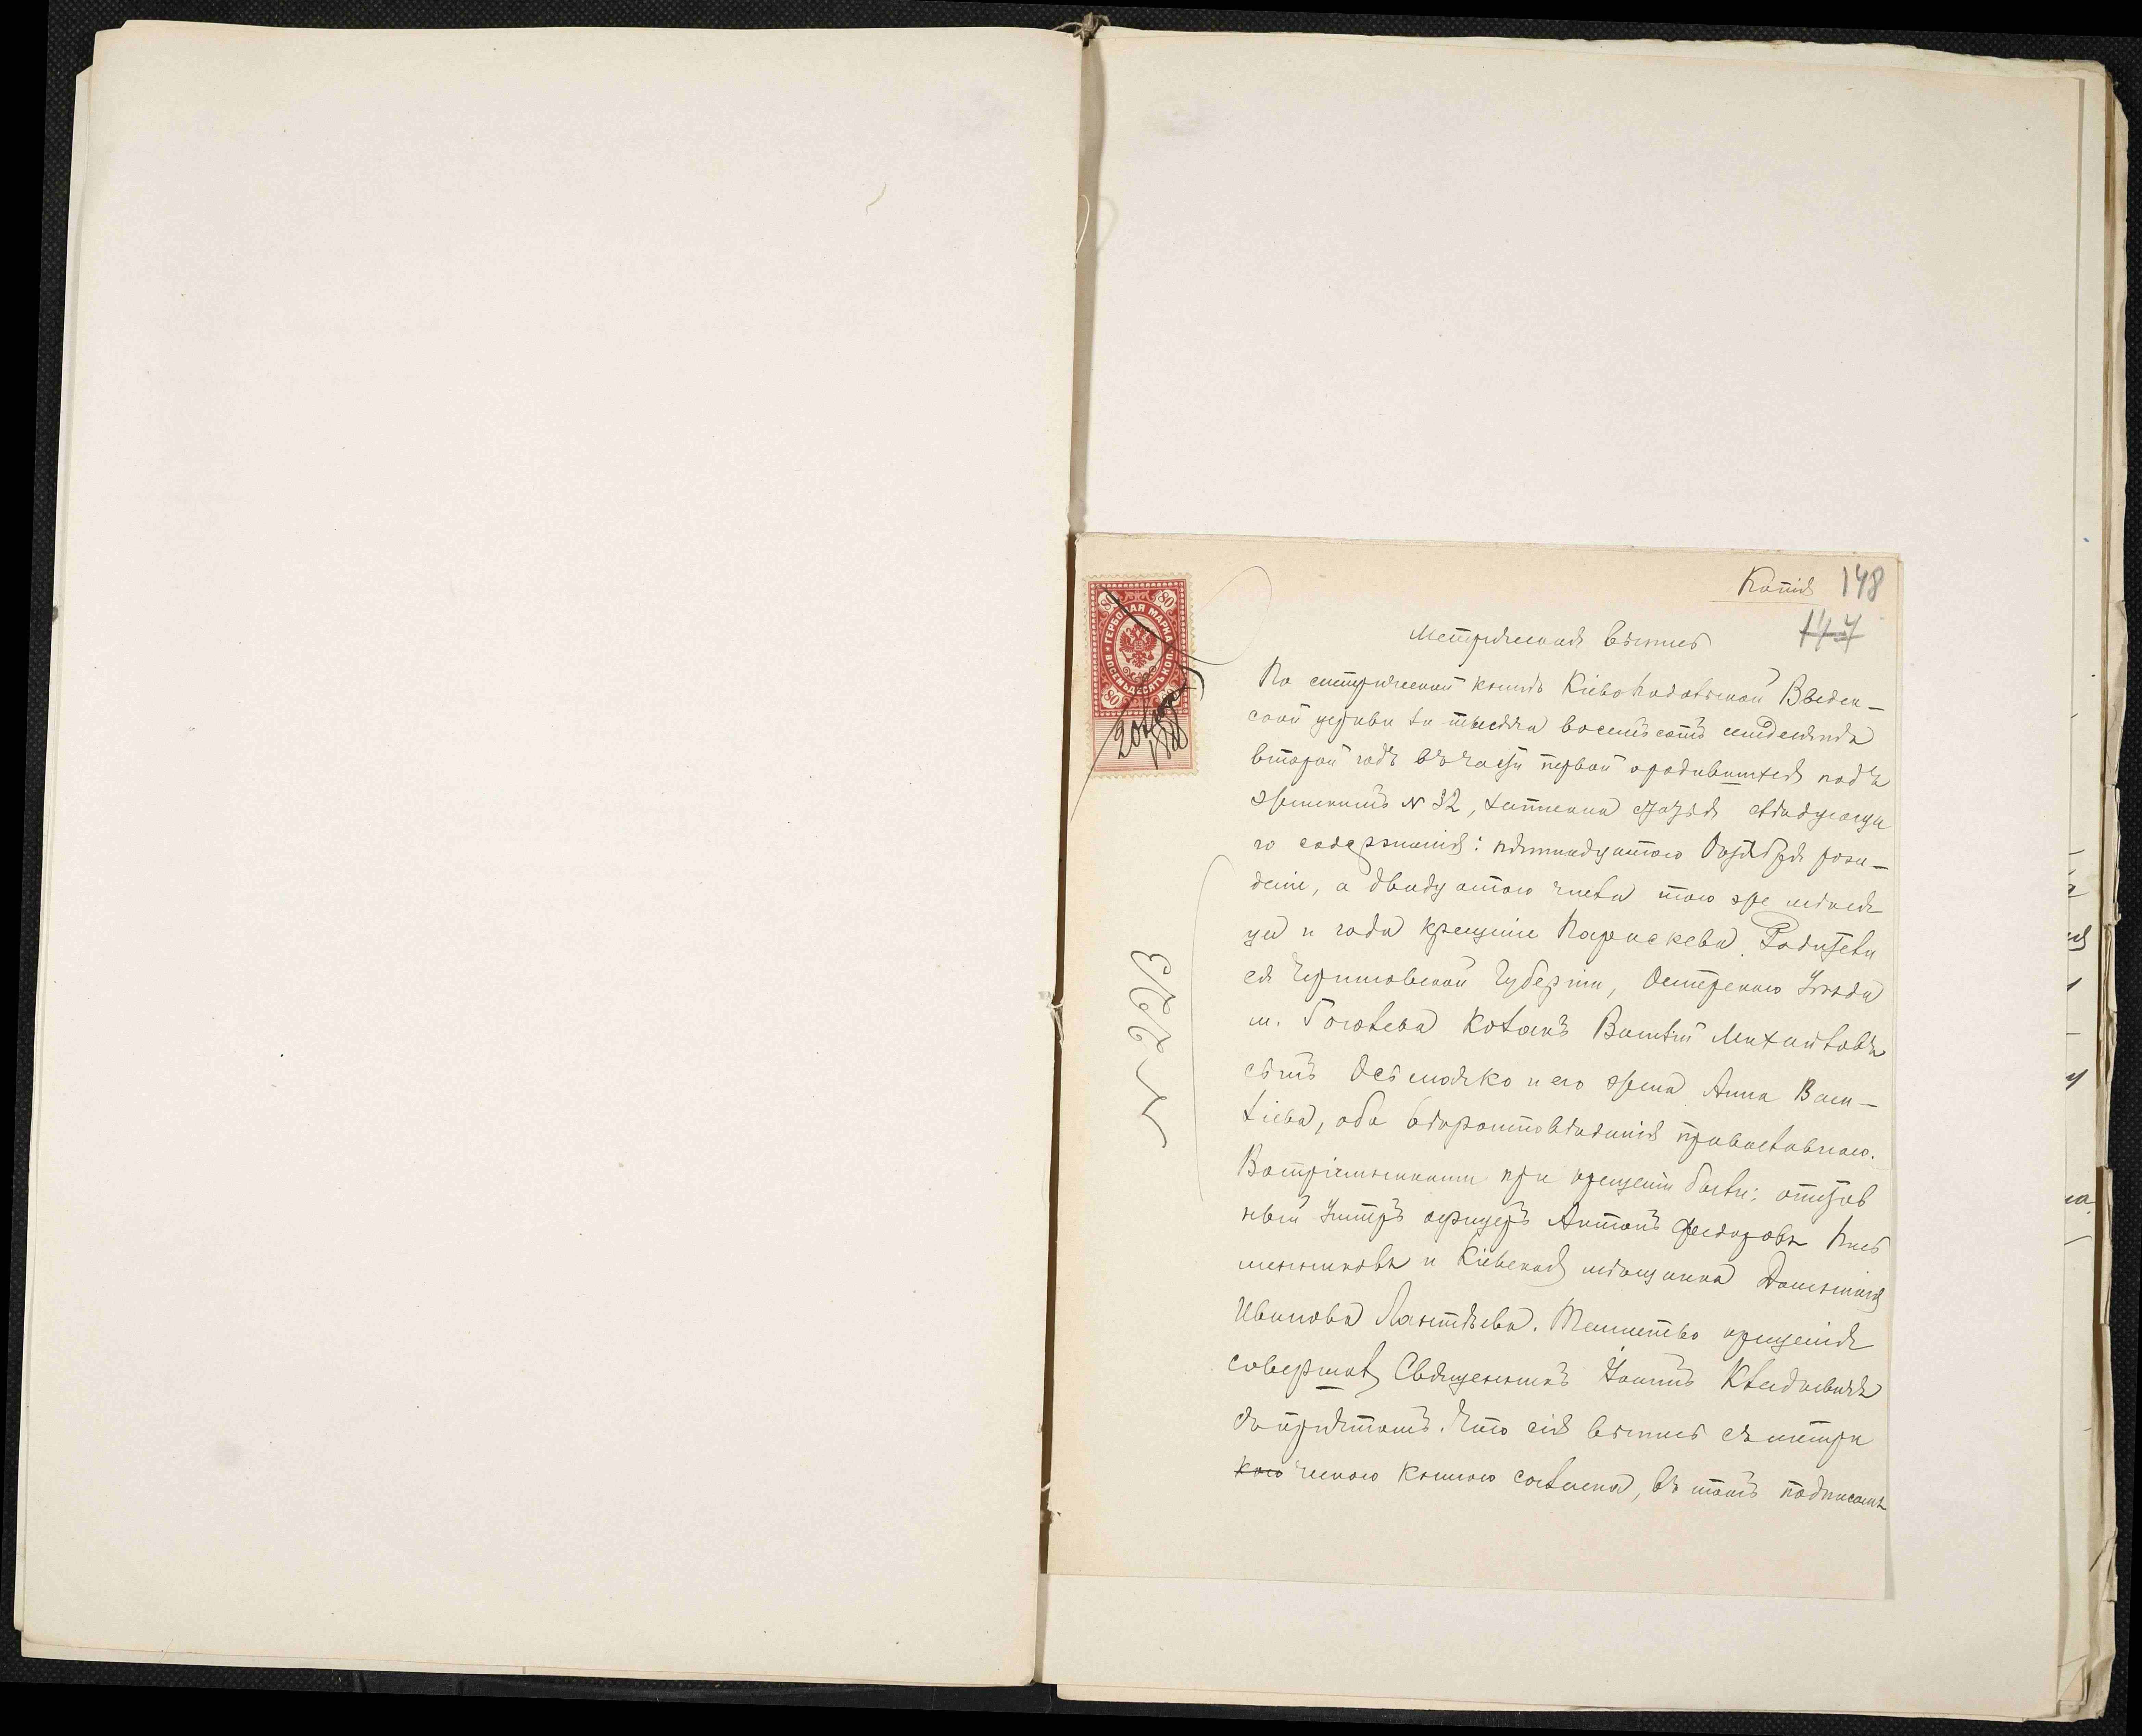 Копія 148
147
Метрическая выпись
По метрической книгѣ Кіевоподольской Введен-
ской церкви за тысяча восемьсотъ семьдесятъ
второй годъ въ части первой о родившихся подъ
женскимъ № 32, записана статья слѣдующа
го содержанія: пятнадцатого Октября рожде-
дение, а двадцатого числа того же мѣся
ца и года крещение Параскева. Родители
ея Черниговской Губерніи, Остерского Уѣзда
м. Гоголева козакъ Василій Михайловъ
сынъ и его жена Анна Васи-
ліева, оба вѣроисповѣданія православного.
Воспріемниками при крещеніи были: отстав
ный Унтеръ офицеръ Антонъ Федоровъ Пись
менниковъ и Кіевская мѣщанка
Иванова Лаянтьева. Таинство крещенія
совершалъ Священникъ Іоаннъ
съ причтомъ. Что сія выпись съ метри
кою ческою книгою согласна, въ томъ подписомъ
№ 223
ГЕРБОВАЯ МАРКА
ВОСЕМЬДЕСЯТЪ КОП.
80 80
80 80
20
188